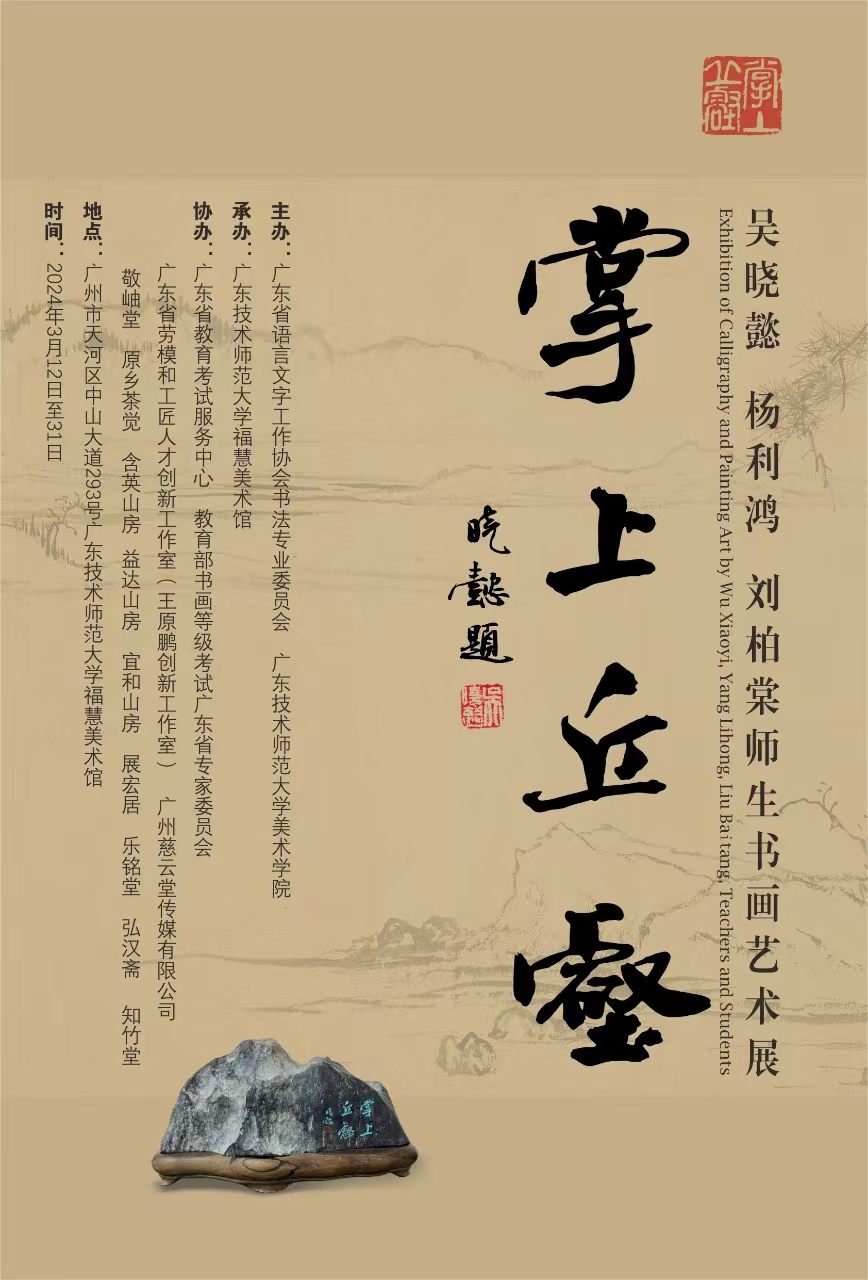 掌上丘壑
吴晓懿 杨利鸿 刘柏棠师生书画艺术展
Exhibition of Calligraphy and Painting Art by Wu Xiaoyi, Yang Lihong, Liu Baitang, Teachers and Students
掌上丘壑
晓懿题
主办：广东省语言文字工作协会书法专业委员会 广东技术师范大学美术学院
承办：广东技术师范大学福慧美术馆
协办：广东省教育考试服务中心 教育部书画等级考试广东省专家委员会
广东省劳模和工匠人才创新工作室（王原鹏创新工作室） 广州慈云堂传媒有限公司
敬岫堂 原乡茶觉 含英山房 益达山房 宜和山房 展宏居 乐铭堂 弘汉斋 知竹堂
地点：广州市天河区中山大道293号广东技术师范大学福慧美术馆
时间：2024年3月12日至31日
掌上
丘壑